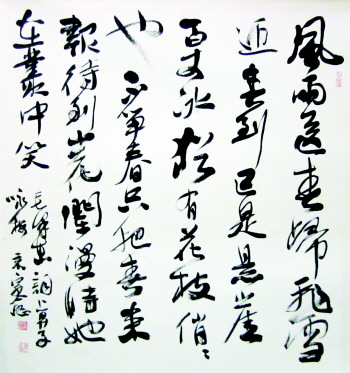 風雨送春歸飛雪
迎春到已是悬崖
百丈冰猶有花枝俏〻
也不争春只把春来
報待到山花爛漫時她
在叢中笑
毛澤東詞卜算子
咏梅